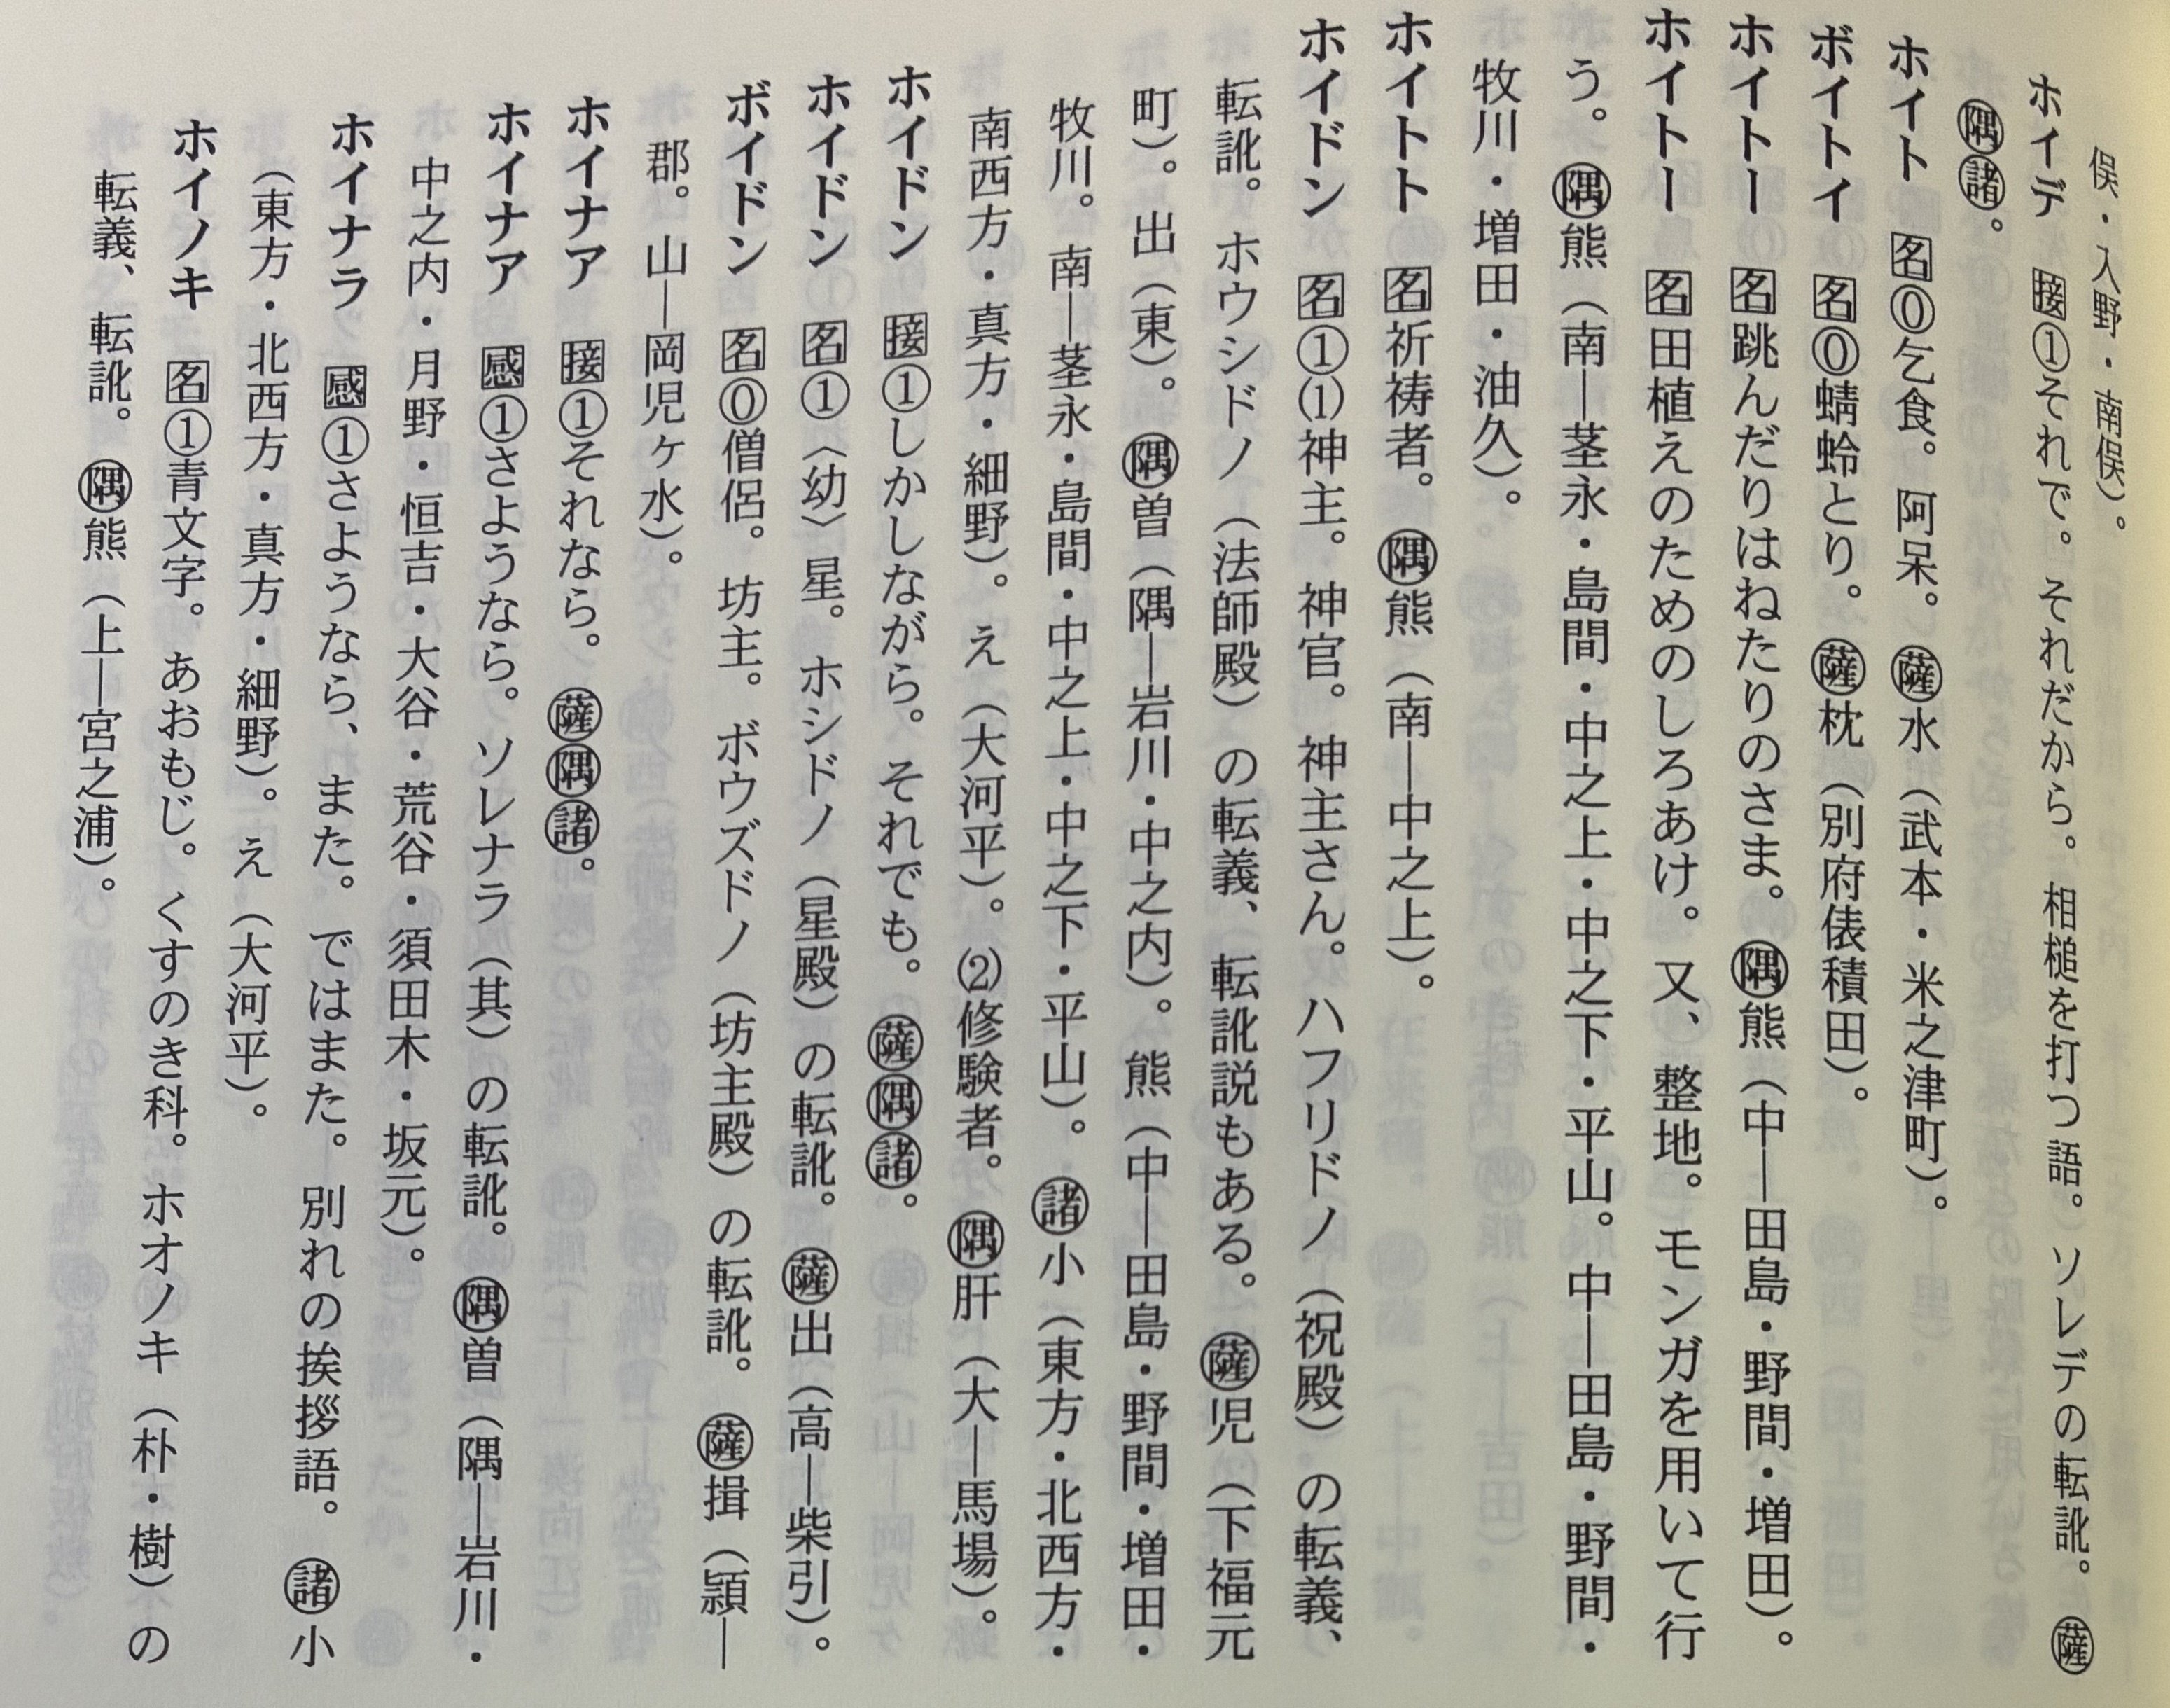 俣・入野・南俣）。
ホイデ　接①それで。それだから。相槌を打つ語。ソレデの転訛。薩
隅諸。
ホイト　名⓪乞食。阿呆。薩水（武本・米之津町）。
ボイトイ　名⓪蜻蛉とり。薩枕（別府俵積田）。
ホイトー　名跳んだりはねたりのさま。隅熊（中―田島・野間・増田）。
ホイトー　名田植えのためのしろあけ。又、整地。モンガを用いて行
う。隅熊（南―茎永・島間・中之上・中之下・平山。中―田島・野間・
牧川・増田・油久）。
ホイトト　名祈祷者。隅熊（南―中之上）。
ホイドン　名①⑴神主。神官。神主さん。ハフリドノ（祝殿）の転義、
転訛。ホウシドノ（法師殿）の転義、転訛説もある。薩児（下福元
町）。出（東）。隅曽（隅―岩川・中之内）。熊（中―田島・野間・増田・
牧川。南―茎永・島間・中之上・中之下・平山）。諸小（東方・北西方・
南西方・真方・細野）。え（大河平）。⑵修験者。隅肝（大―馬場）。
ホイドン　接①しかしながら。それでも。薩隅諸。
ホイドン　名①〈幼〉星。ホシドノ（星殿）の転訛。薩出（高―柴引）。
ボイドン　名⓪僧侶。坊主。ボウズドノ（坊主殿）の転訛。薩揖（頴―
郡。山―岡児ヶ水）。
ホイナア　接①それなら。薩隅諸。
ホイナア　感①さようなら。ソレナラ（其）の転訛。隅曽（隅―岩川・
中之内・月野・恒吉・大谷・荒谷・須田木・坂元）。
ホイナラ　感①さようなら、また。ではまた。別れの挨拶語。諸小
（東方・北西方・真方・細野）。え（大河平）。
ホイノキ　名①青文字。あおもじ。くすのき科。ホオノキ（朴・樹）の
転義、転訛。隅熊（上―宮之浦）。